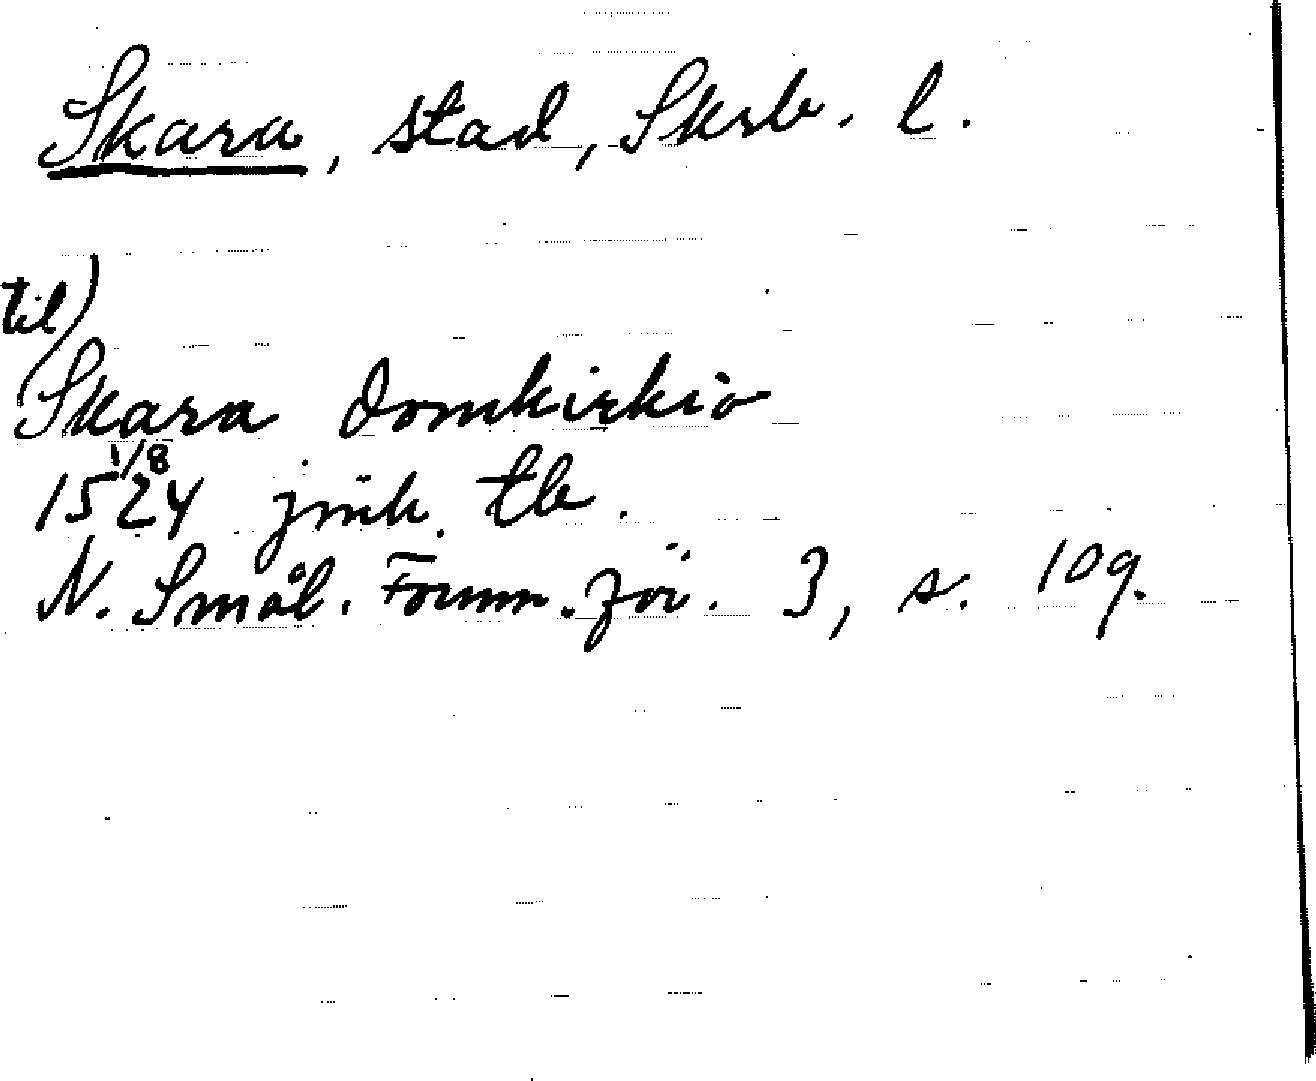 Skara, stad, Skrb. l.
til)
Skara domkirkiö
1/8
1524 jmk. tb.
N. Smål. Fornm.för. 3, s. 109.